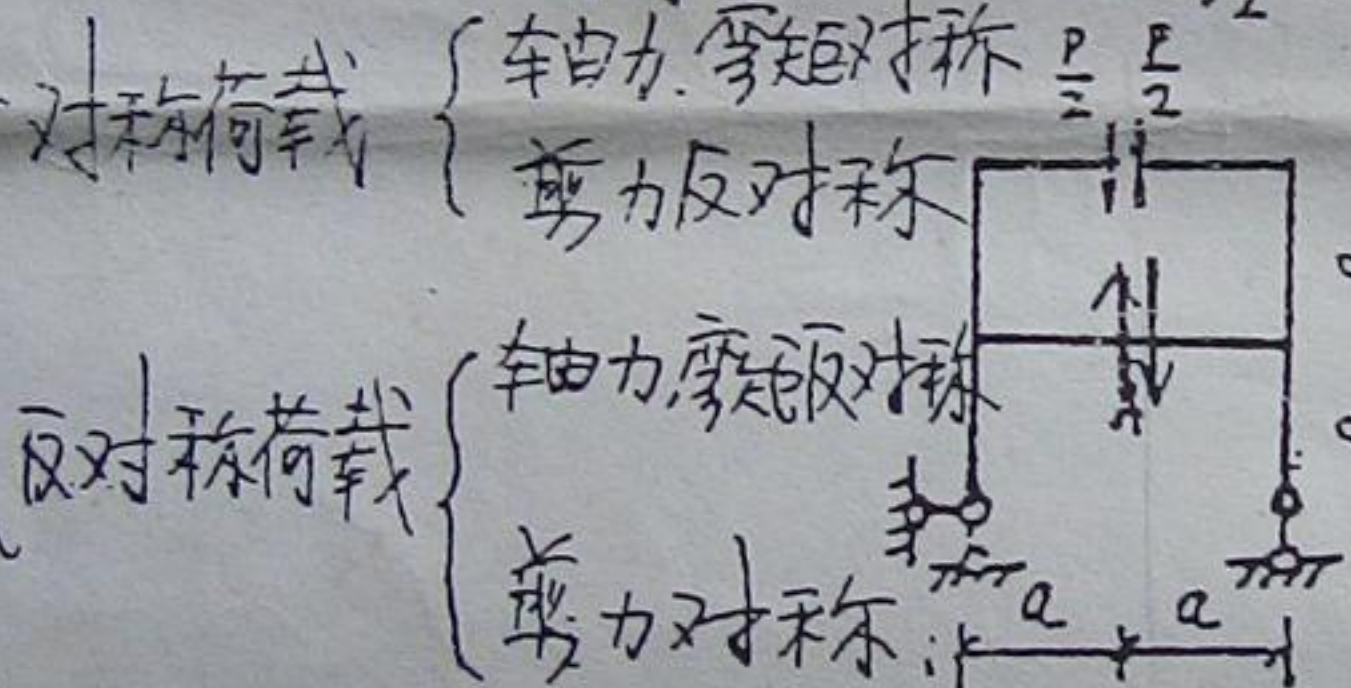 对称荷载 { 轴力.弯矩对称
剪力反对称
反对称荷载 { 轴力,弯矩反对称
剪力对称
P/2 P/2
a a